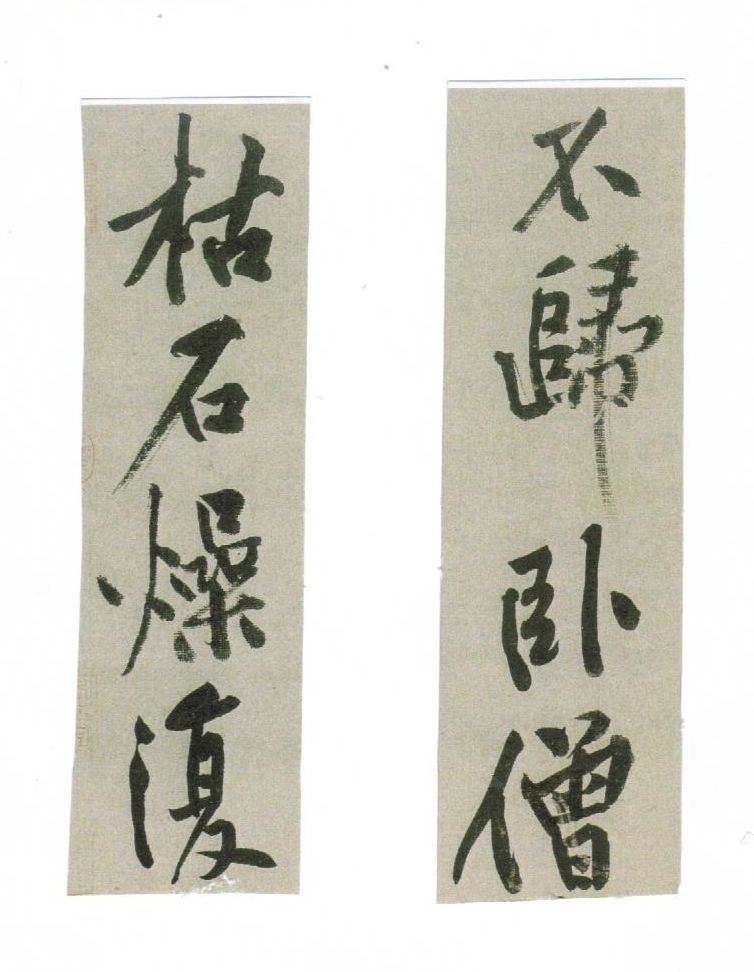 不歸卧僧
枯石燥復